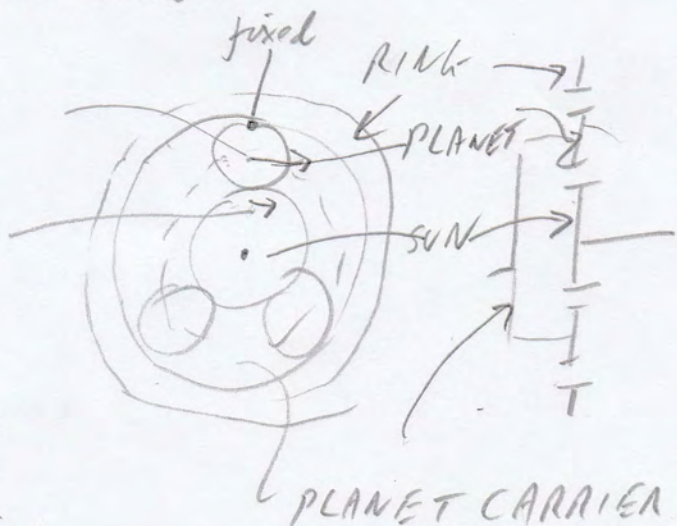 fixed
RING
PLANET
SUN
PLANET CARRIER